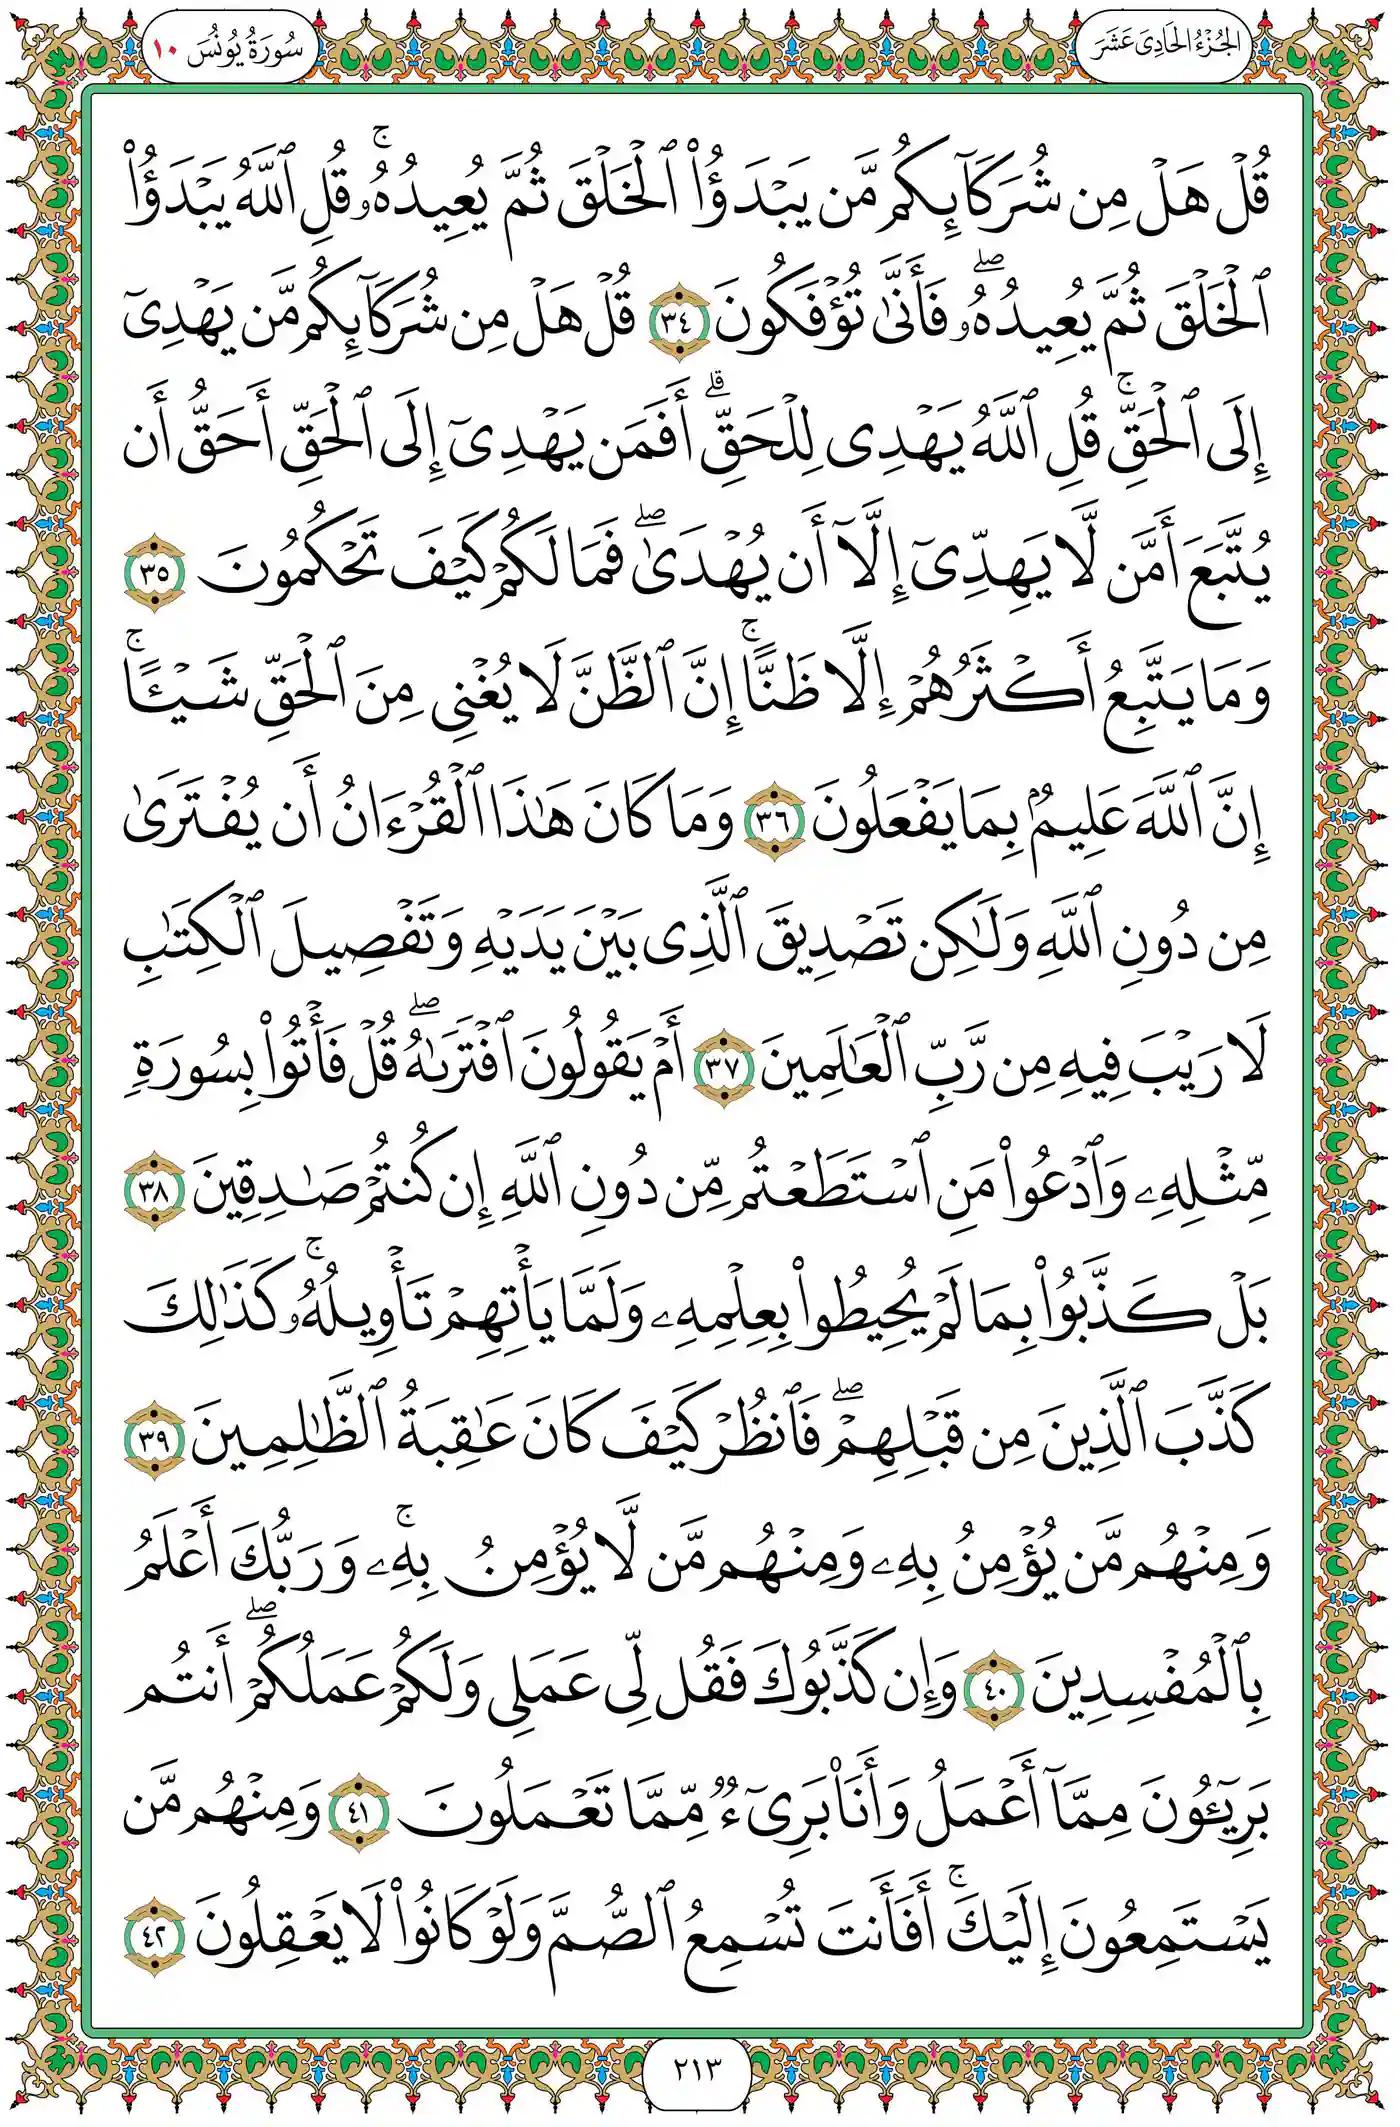 الجُزْءُ الحَادِيَ عَشَرَ
سُورَةُ يُونُسَ ١٠
قُلْ هَلْ مِن شُرَكَآئِكُم مَّن يَبْدَؤُا۟ ٱلْخَلْقَ ثُمَّ يُعِيدُهُۥ ۚ قُلِ ٱللَّهُ يَبْدَؤُا۟
ٱلْخَلْقَ ثُمَّ يُعِيدُهُۥ ۖ فَأَنَّىٰ تُؤْفَكُونَ ٣٤ قُلْ هَلْ مِن شُرَكَآئِكُم مَّن يَهْدِىٓ
إِلَى ٱلْحَقِّ ۚ قُلِ ٱللَّهُ يَهْدِى لِلْحَقِّ ۗ أَفَمَن يَهْدِىٓ إِلَى ٱلْحَقِّ أَحَقُّ أَن
يُتَّبَعَ أَمَّن لَّا يَهِدِّىٓ إِلَّآ أَن يُهْدَىٰ ۖ فَمَا لَكُمْ كَيْفَ تَحْكُمُونَ ٣٥
وَمَا يَتَّبِعُ أَكْثَرُهُمْ إِلَّا ظَنًّا ۚ إِنَّ ٱلظَّنَّ لَا يُغْنِى مِنَ ٱلْحَقِّ شَيْـًٔا ۚ
إِنَّ ٱللَّهَ عَلِيمٌۢ بِمَا يَفْعَلُونَ ٣٦ وَمَا كَانَ هَـٰذَا ٱلْقُرْءَانُ أَن يُفْتَرَىٰ
مِن دُونِ ٱللَّهِ وَلَـٰكِن تَصْدِيقَ ٱلَّذِى بَيْنَ يَدَيْهِ وَتَفْصِيلَ ٱلْكِتَـٰبِ
لَا رَيْبَ فِيهِ مِن رَّبِّ ٱلْعَـٰلَمِينَ ٣٧ أَمْ يَقُولُونَ ٱفْتَرَىٰهُ ۖ قُلْ فَأْتُوا۟ بِسُورَةٍ
مِّثْلِهِۦ وَٱدْعُوا۟ مَنِ ٱسْتَطَعْتُم مِّن دُونِ ٱللَّهِ إِن كُنتُمْ صَـٰدِقِينَ ٣٨
بَلْ كَذَّبُوا۟ بِمَا لَمْ يُحِيطُوا۟ بِعِلْمِهِۦ وَلَمَّا يَأْتِهِمْ تَأْوِيلُهُۥ ۚ كَذَٰلِكَ
كَذَّبَ ٱلَّذِينَ مِن قَبْلِهِمْ ۖ فَٱنظُرْ كَيْفَ كَانَ عَـٰقِبَةُ ٱلظَّـٰلِمِينَ ٣٩
وَمِنْهُم مَّن يُؤْمِنُ بِهِۦ وَمِنْهُم مَّن لَّا يُؤْمِنُ بِهِۦ ۚ وَرَبُّكَ أَعْلَمُ
بِٱلْمُفْسِدِينَ ٤٠ وَإِن كَذَّبُوكَ فَقُل لِّى عَمَلِى وَلَكُمْ عَمَلُكُمْ ۖ أَنتُم
بَرِيٓـُٔونَ مِمَّآ أَعْمَلُ وَأَنَا۠ بَرِىٓءٌ مِّمَّا تَعْمَلُونَ ٤١ وَمِنْهُم مَّن
يَسْتَمِعُونَ إِلَيْكَ ۚ أَفَأَنتَ تُسْمِعُ ٱلصُّمَّ وَلَوْ كَانُوا۟ لَا يَعْقِلُونَ ٤٢
٢١٣